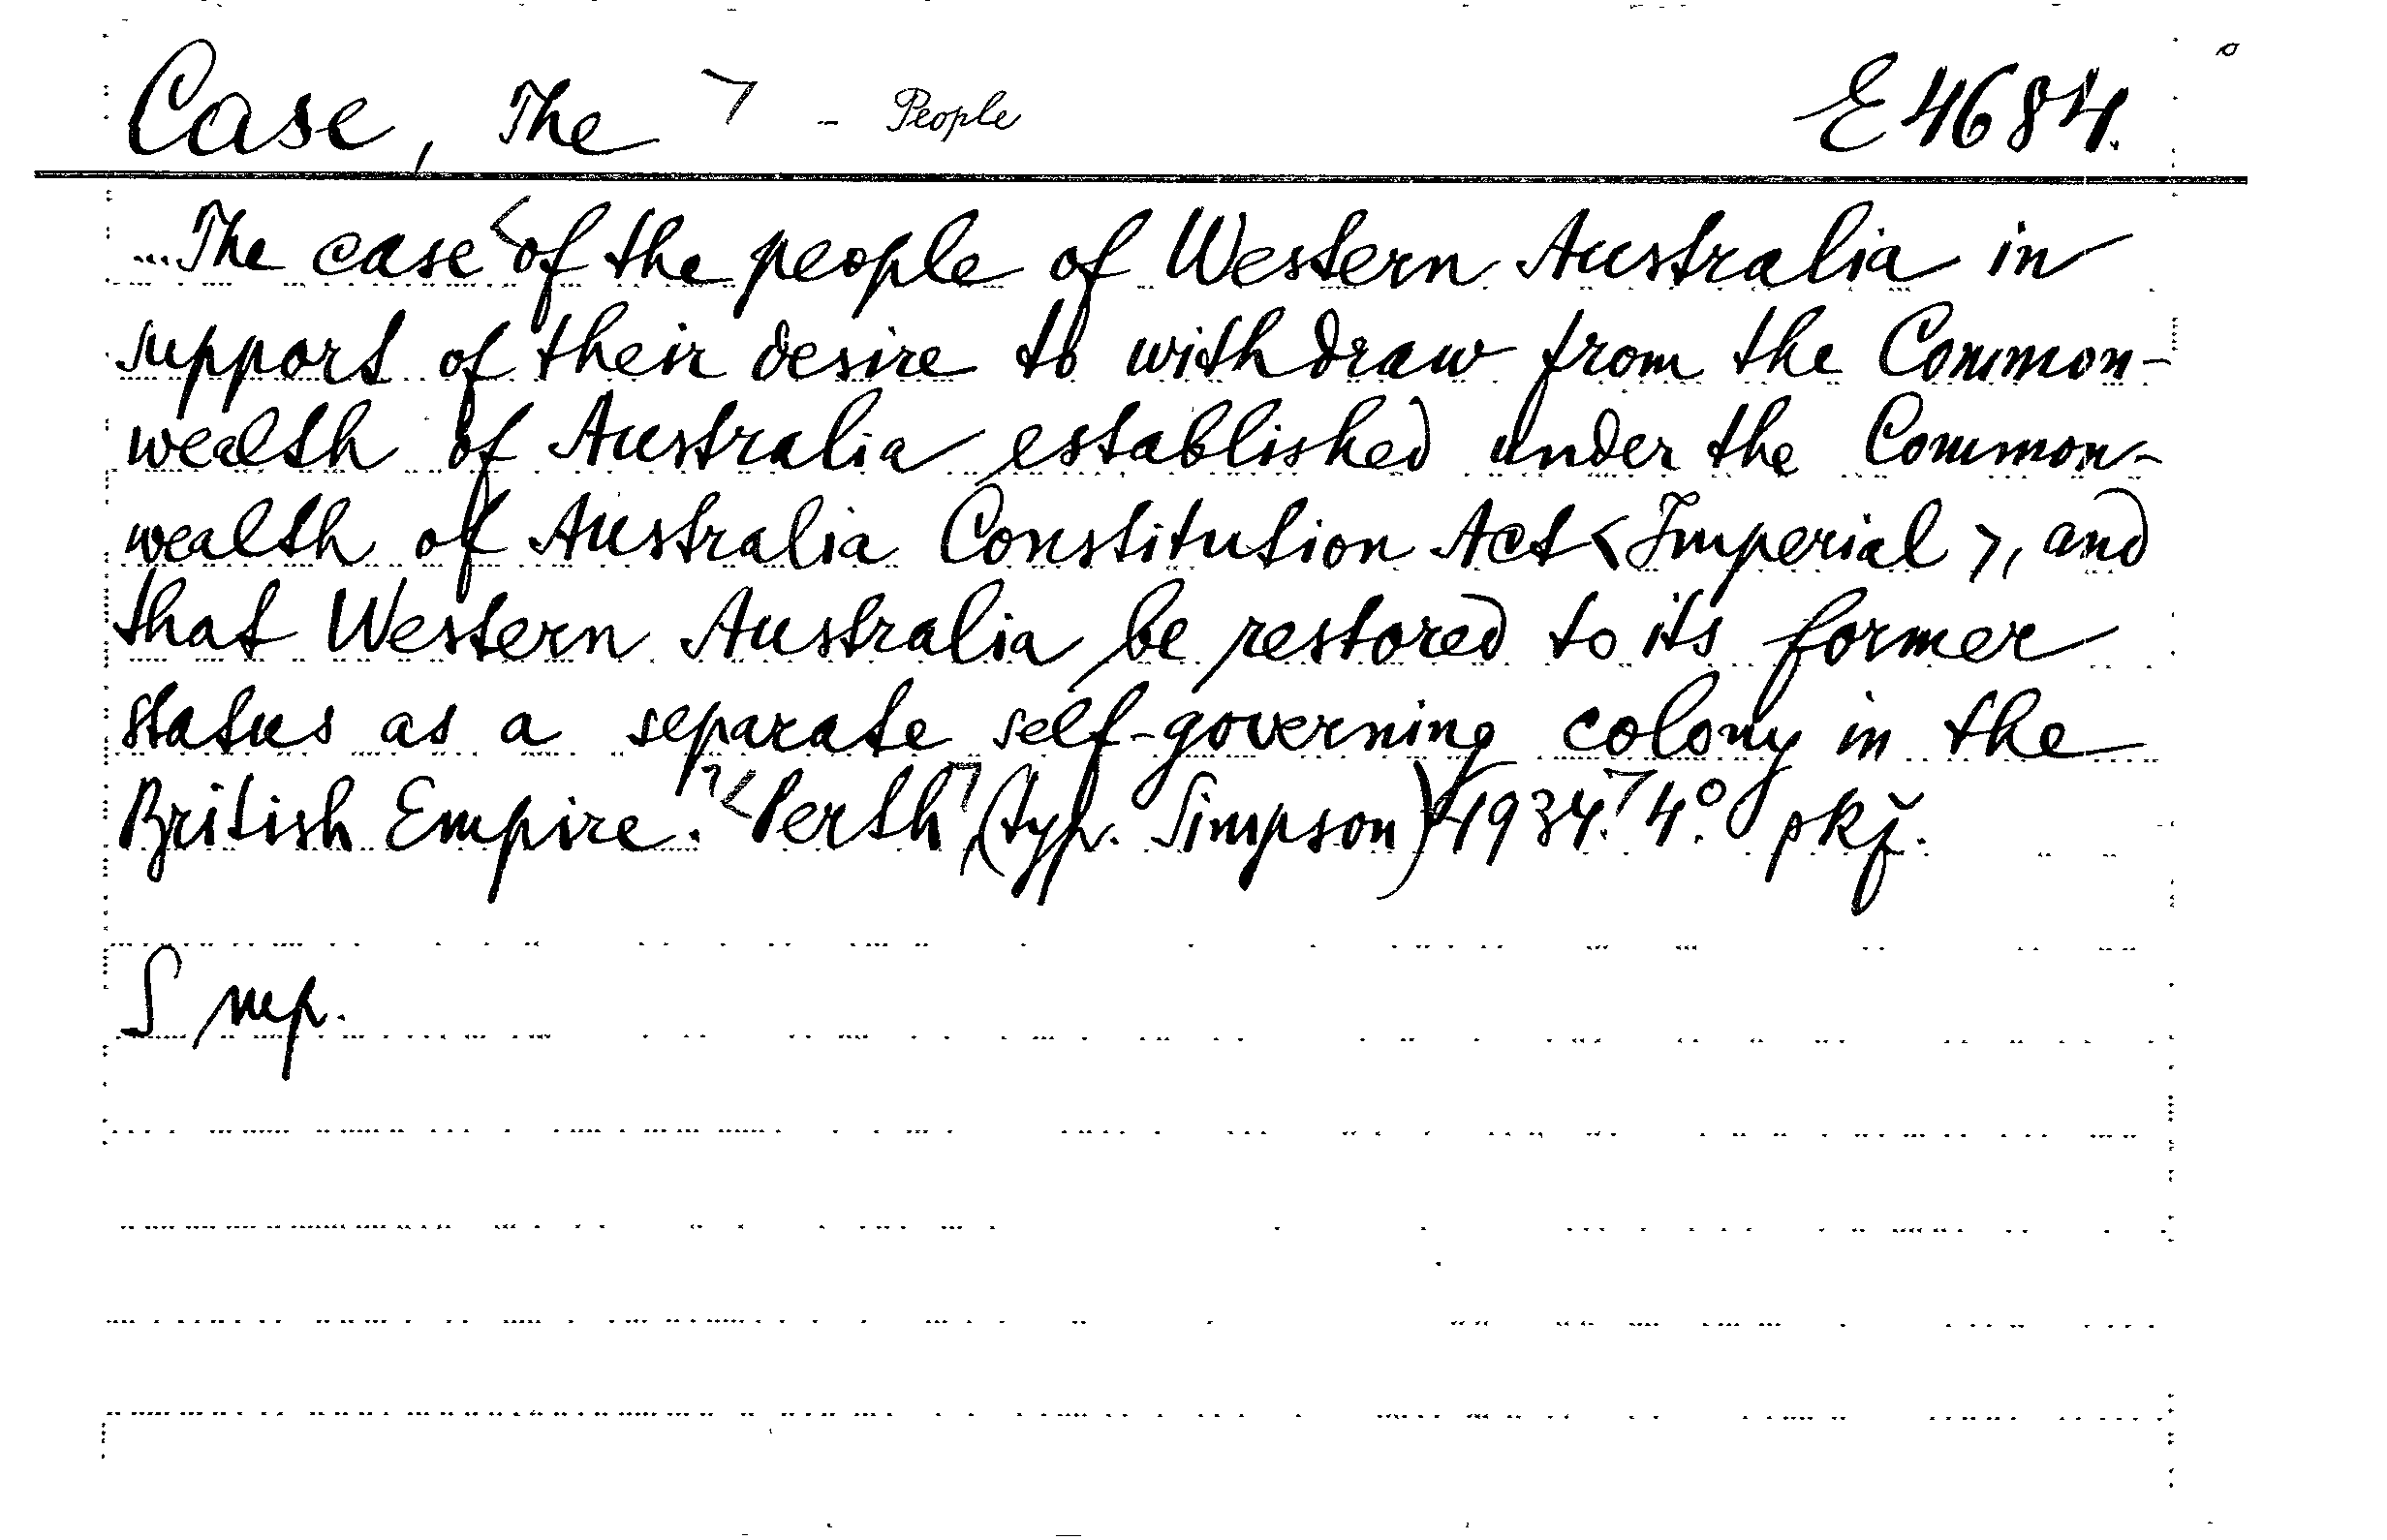 Case, The > - People E 4684.
...The case < of the people of Western Australia in
support of their desire to withdraw from the Common-
wealth of Australia established under the Common-
wealth of Australia Constitution Act < Imperial >, and
that Western Australia be restored to its former
status as a separate self-governing colony in the
British Empire. > < Perth >, (typ. Simpson) < 1934. > 4°. pkf.
S